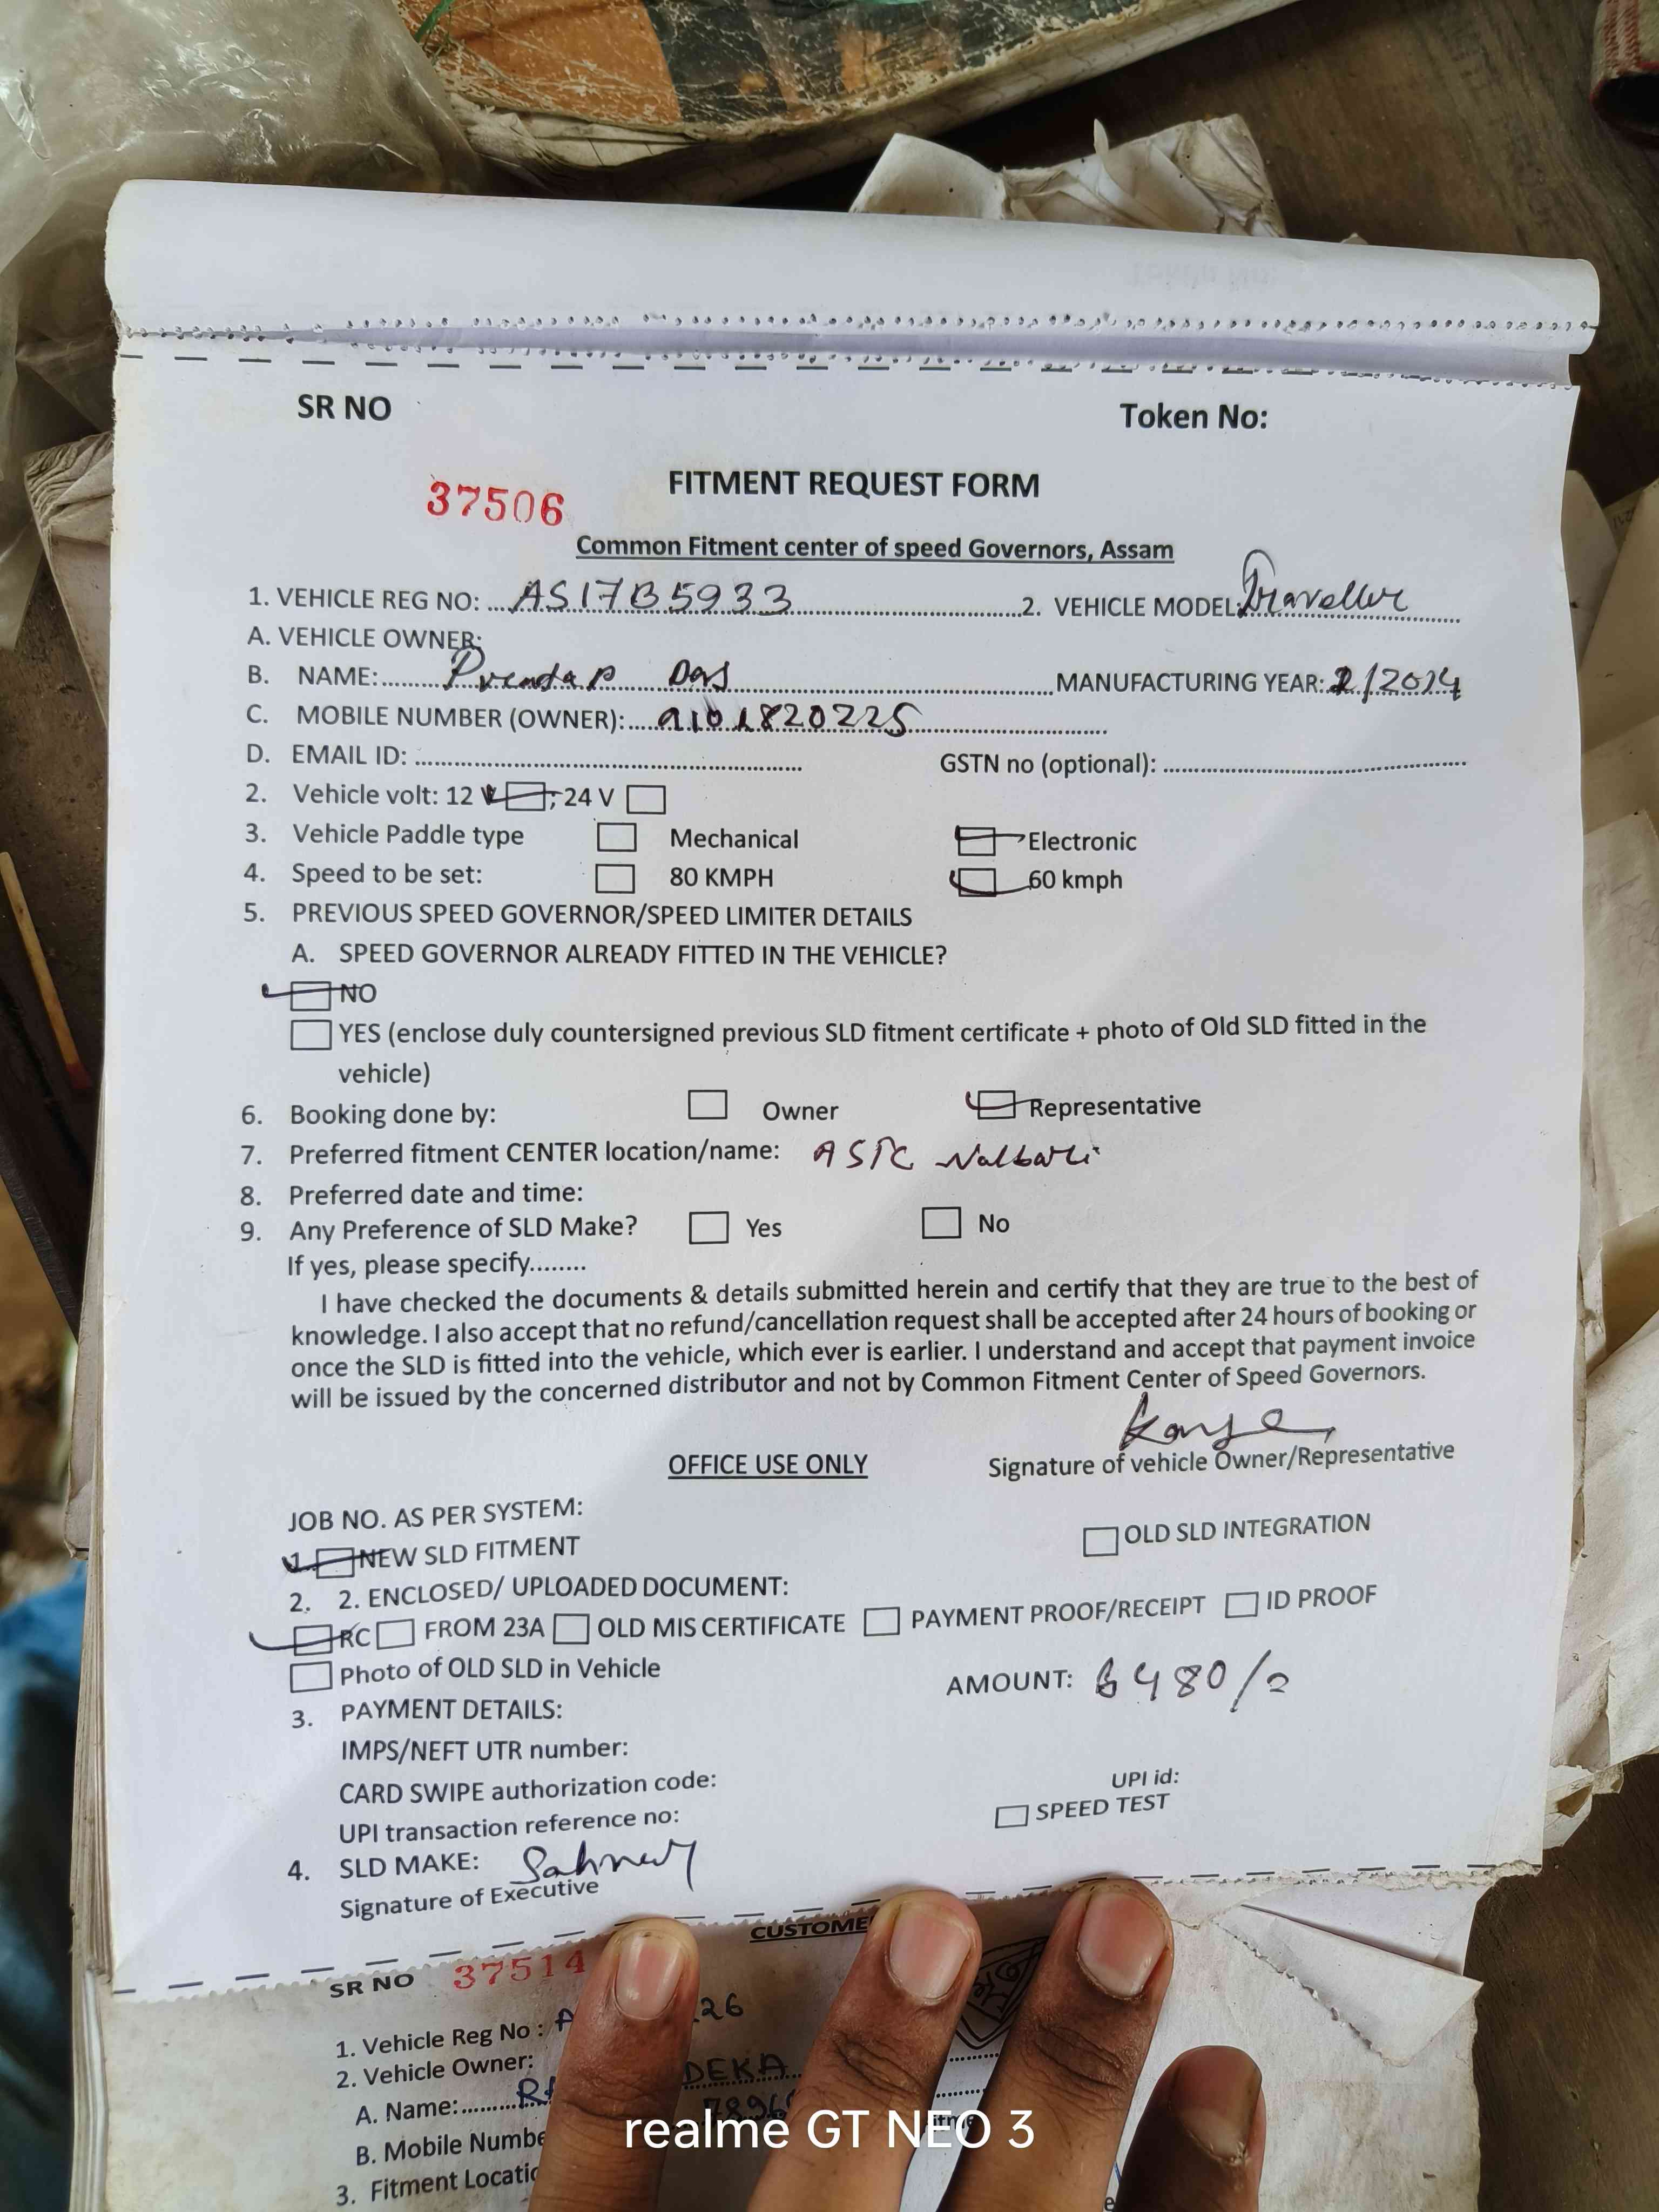 SR NO
Token No:
37506
FITMENT REQUEST FORM
Common Fitment center of speed Governors, Assam
1. VEHICLE REG NO: AS17B5933 2. VEHICLE MODEL: Traveller
A. VEHICLE OWNER:
B. NAME: Das MANUFACTURING YEAR: 2/2014
C. MOBILE NUMBER (OWNER): 9101820225
D. EMAIL ID: GSTN no (optional):
2. Vehicle volt: 12 V ; 24 V
3. Vehicle Paddle type Mechanical Electronic
4. Speed to be set: 80 KMPH 60 kmph
5. PREVIOUS SPEED GOVERNOR/SPEED LIMITER DETAILS
A. SPEED GOVERNOR ALREADY FITTED IN THE VEHICLE?
NO
YES (enclose duly countersigned previous SLD fitment certificate + photo of Old SLD fitted in the
vehicle)
6. Booking done by: Owner Representative
7. Preferred fitment CENTER location/name: ASTC Nalbari
8. Preferred date and time:
9. Any Preference of SLD Make? Yes No
If yes, please specify........
I have checked the documents & details submitted herein and certify that they are true to the best of
knowledge. I also accept that no refund/cancellation request shall be accepted after 24 hours of booking or
once the SLD is fitted into the vehicle, which ever is earlier. I understand and accept that payment invoice
will be issued by the concerned distributor and not by Common Fitment Center of Speed Governors.
OFFICE USE ONLY
Signature of vehicle Owner/Representative
JOB NO. AS PER SYSTEM:
1. NEW SLD FITMENT OLD SLD INTEGRATION
2. 2. ENCLOSED/ UPLOADED DOCUMENT:
RC FROM 23A OLD MIS CERTIFICATE PAYMENT PROOF/RECEIPT ID PROOF
Photo of OLD SLD in Vehicle
AMOUNT: 6480/=
3. PAYMENT DETAILS:
IMPS/NEFT UTR number:
CARD SWIPE authorization code:
UPI id:
UPI transaction reference no:
SPEED TEST
4. SLD MAKE:
Signature of Executive
CUSTOME
SR NO 37514
1. Vehicle Reg No : A 26
2. Vehicle Owner:
A. Name: DEKA
B. Mobile Numbe
3. Fitment Locatio
realme GT NEO 3